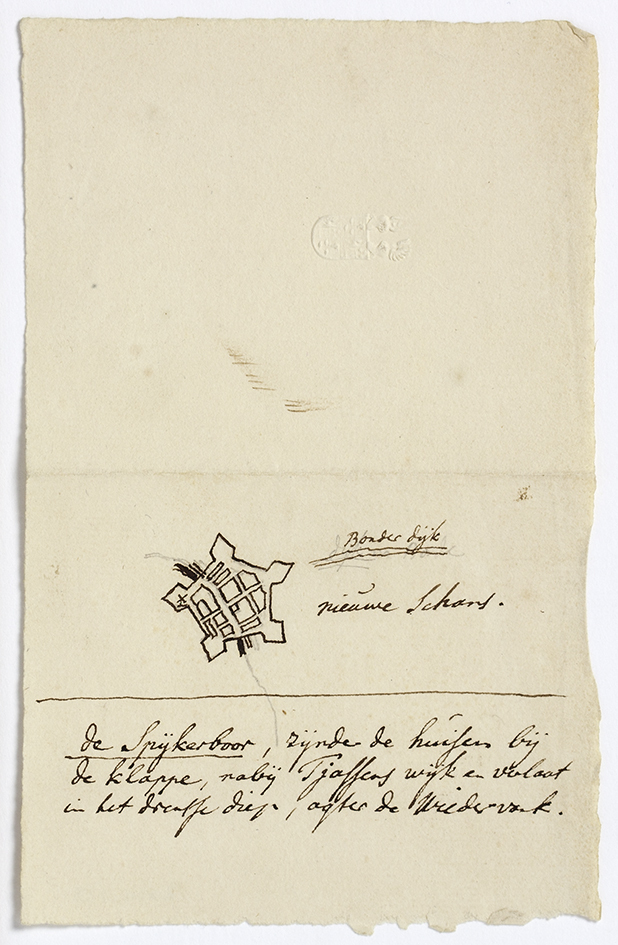 Bonder dijk
nieuwe Schans.
de Spijkerboor, zijnde de huisen bij
de klappe, nabij Tjassens wijk en verlaat
in het drentsse diep, agter de Wildervank.